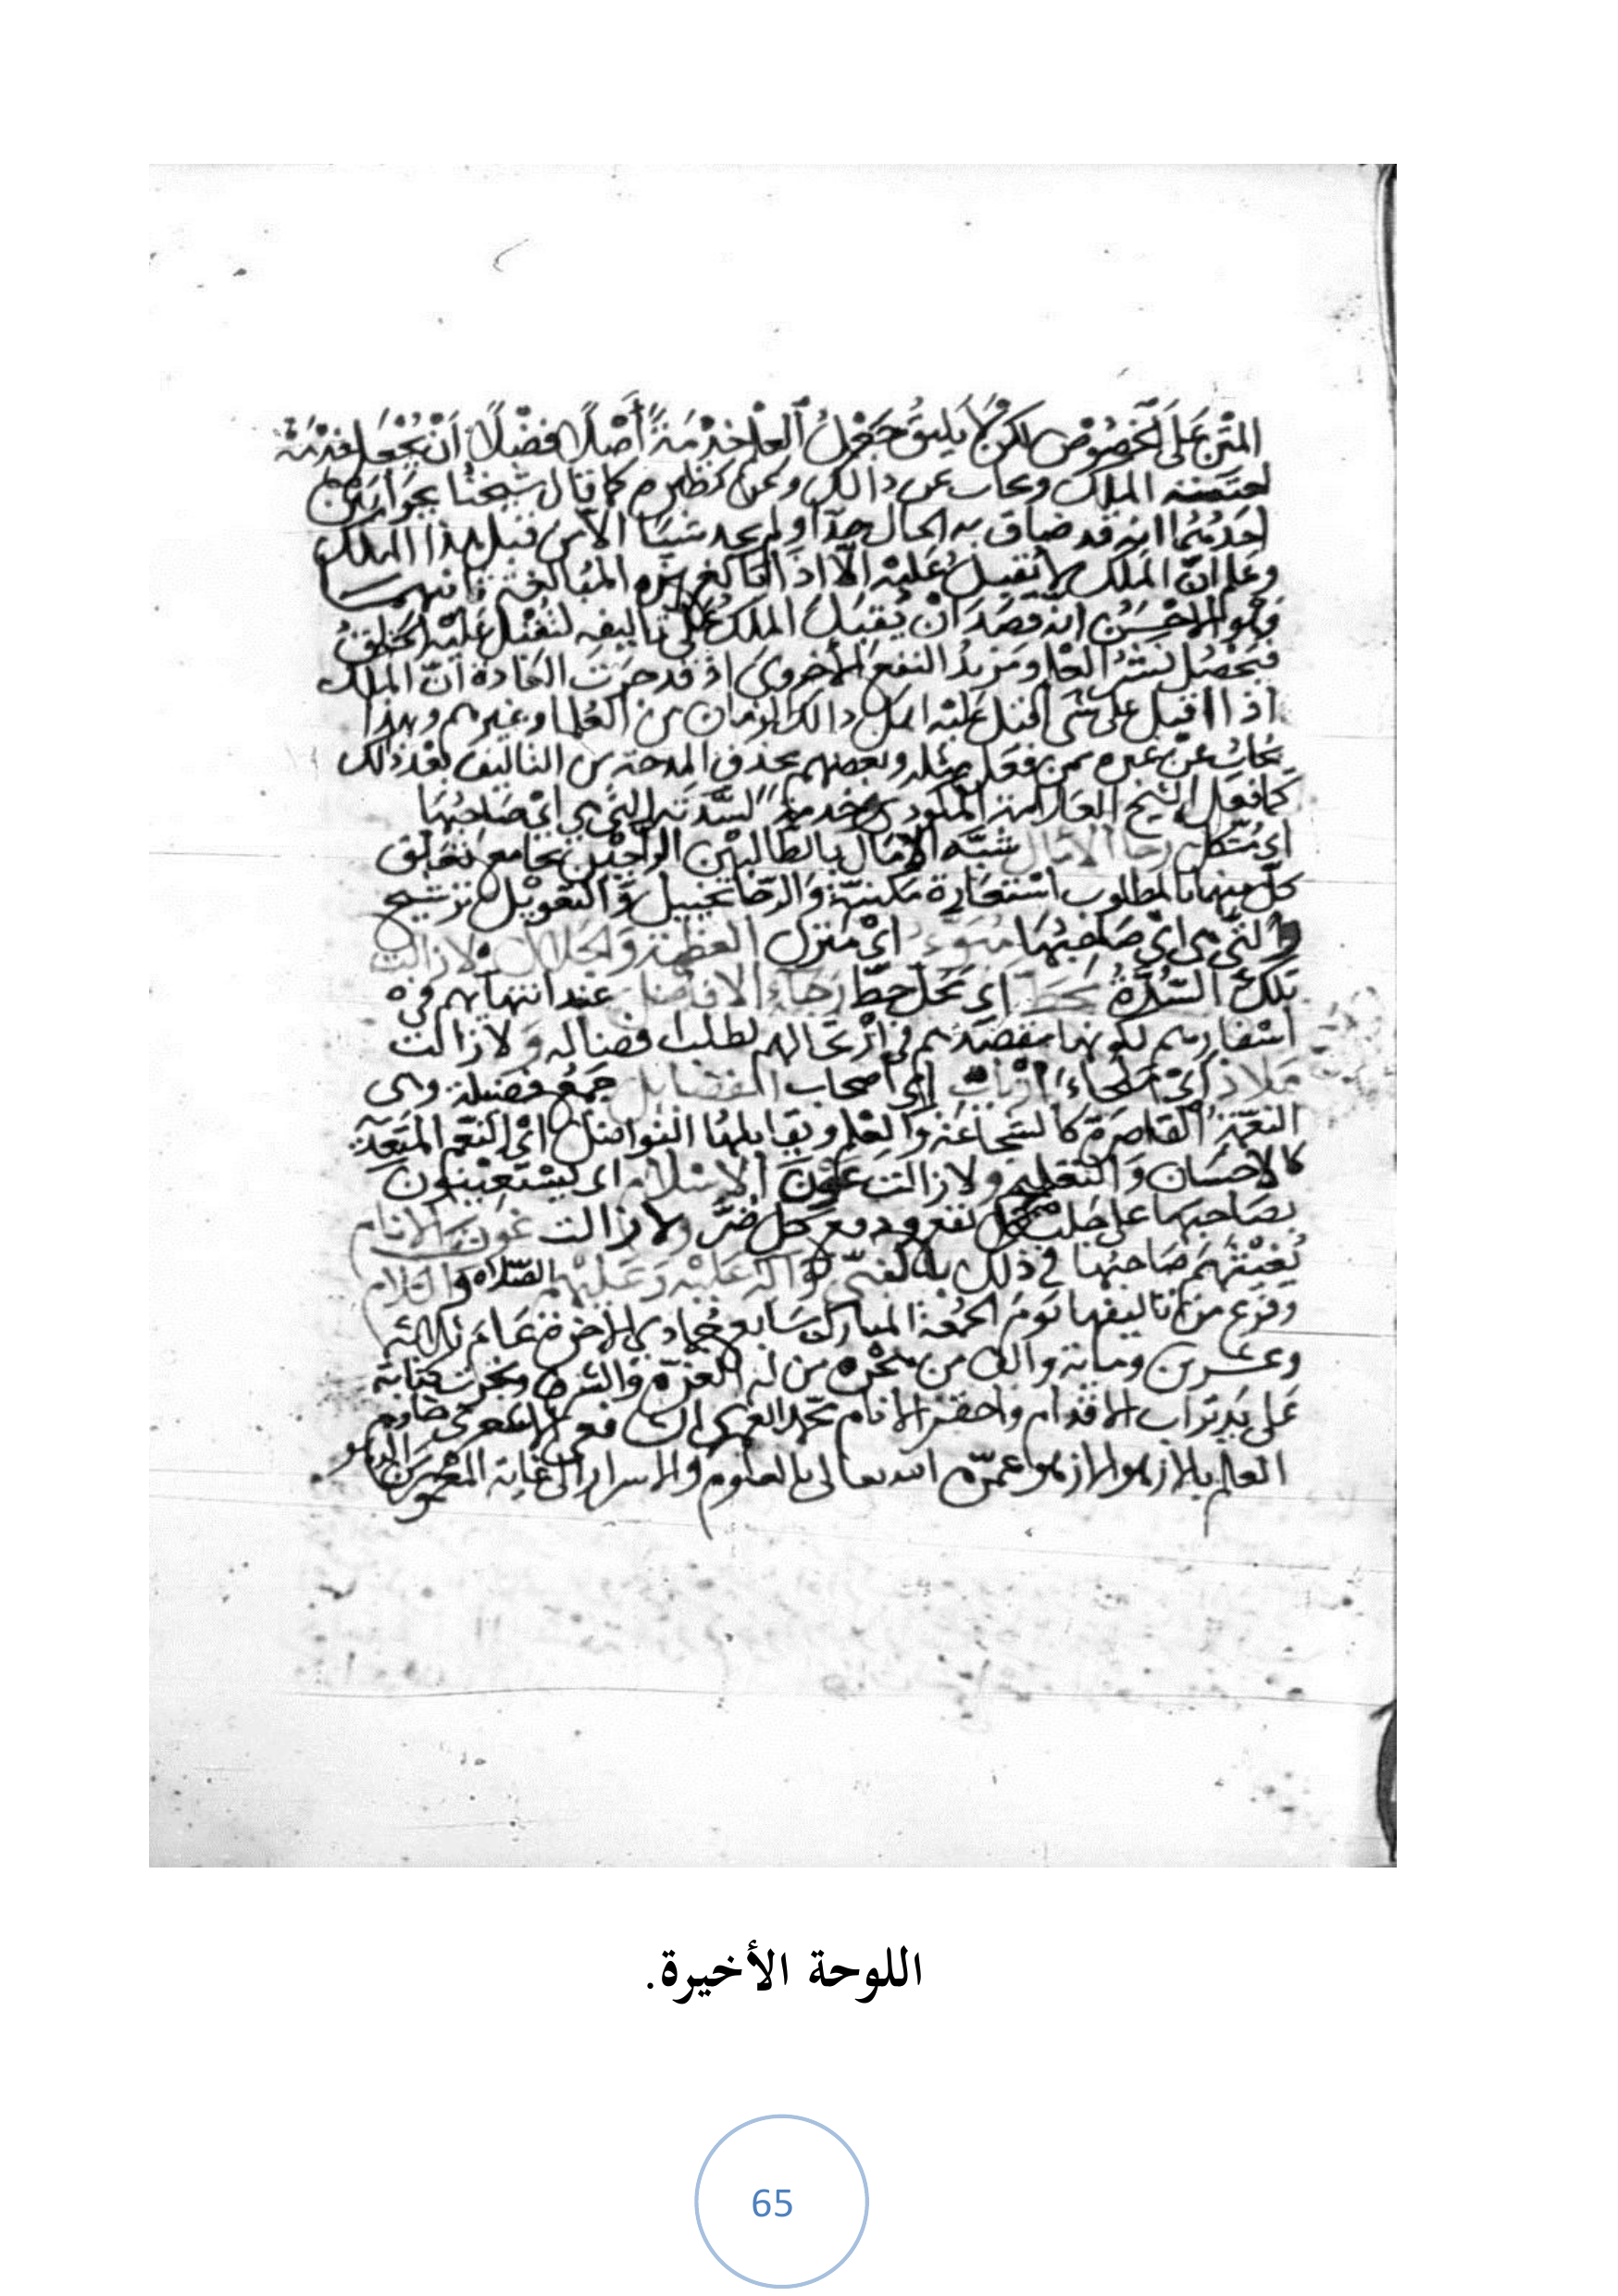 المتن على الخصوص لكن لا يليق جعل العلم خدمة أصلا فضلا أن يجعل خدمة
الملك ويجاب عن ذالك وعن نظيره كما قال شيخنا بجوابين
احدهما انه قد ضاق به الحال جدا ولم يجد شيئا الا من قبل هذا الملك
وعلم ان الملك لا يقبل عليه الا اذا بالغ هذه المبالغة ثانيهما
وهو الاحسن انه قصد ان يقبل الملك على تاليفه لتقبل عليه الخلق
فيحصل نشر العلم ومزيد النفع الأخروي اذ قد جرت العادة ان الملك
اذا اقبل على شي اقبل عليه اهل ذالك الزمان من العلما وغيرهم وبهذا
يجاب عن غيره ممن فعل مثله وبعضهم يحذف المدحة من التاليف بعد ذلك
كما فعل الشيخ العلامة المكودي خدمة لسدته التي هي اي صاحبها
اي متكل رجا الآمال شبه الآمال بالطالبين الراجين بجامع تعلق
كل منهما بالمطلوب استعارة مكنية والرجا تخييل والتعويل ترشيح
والتي هي اي صاحبها مبوء اي منزل العظمة والجلال لا زالت
تلك السدة محط اي محل حط رحال الافاضل عند انتهايهم في
اسفارهم لكونها مقصدهم في ارتحالهم لطلب فضاله ولا زالت
ملاذ اي ملجاء ارباب اي اصحاب الفضايل جمع فضيلة وهي
النعمة القاصرة كالشجاعة والعلم ويقابلها الفواضل اي النعم المتعدية
كالاحسان والتعليم ولا زالت عون الاسلام اي يستعينون
بصاحبها على جلب كل نفع ودفع كل ضر ولا زالت غوث الانام
يغيثهم صاحبها في ذلك بالنبي واله عليه وعليهم الصلاة والسلام
وفرغ من تاليفها يوم الجمعة المبارك سابع جمادى الاخرة عام ثلاثة
وعشرين وماية والف من هجرة من له العزة والشرف ونجزت كتابة
على يد تراب الاقدام واحقر الانام محمد الشافعي خادم
العلم بالازهر الازهر عمره الله تعالى بالعلوم والاسرار الى غاية
اللوحة الأخيرة.
65